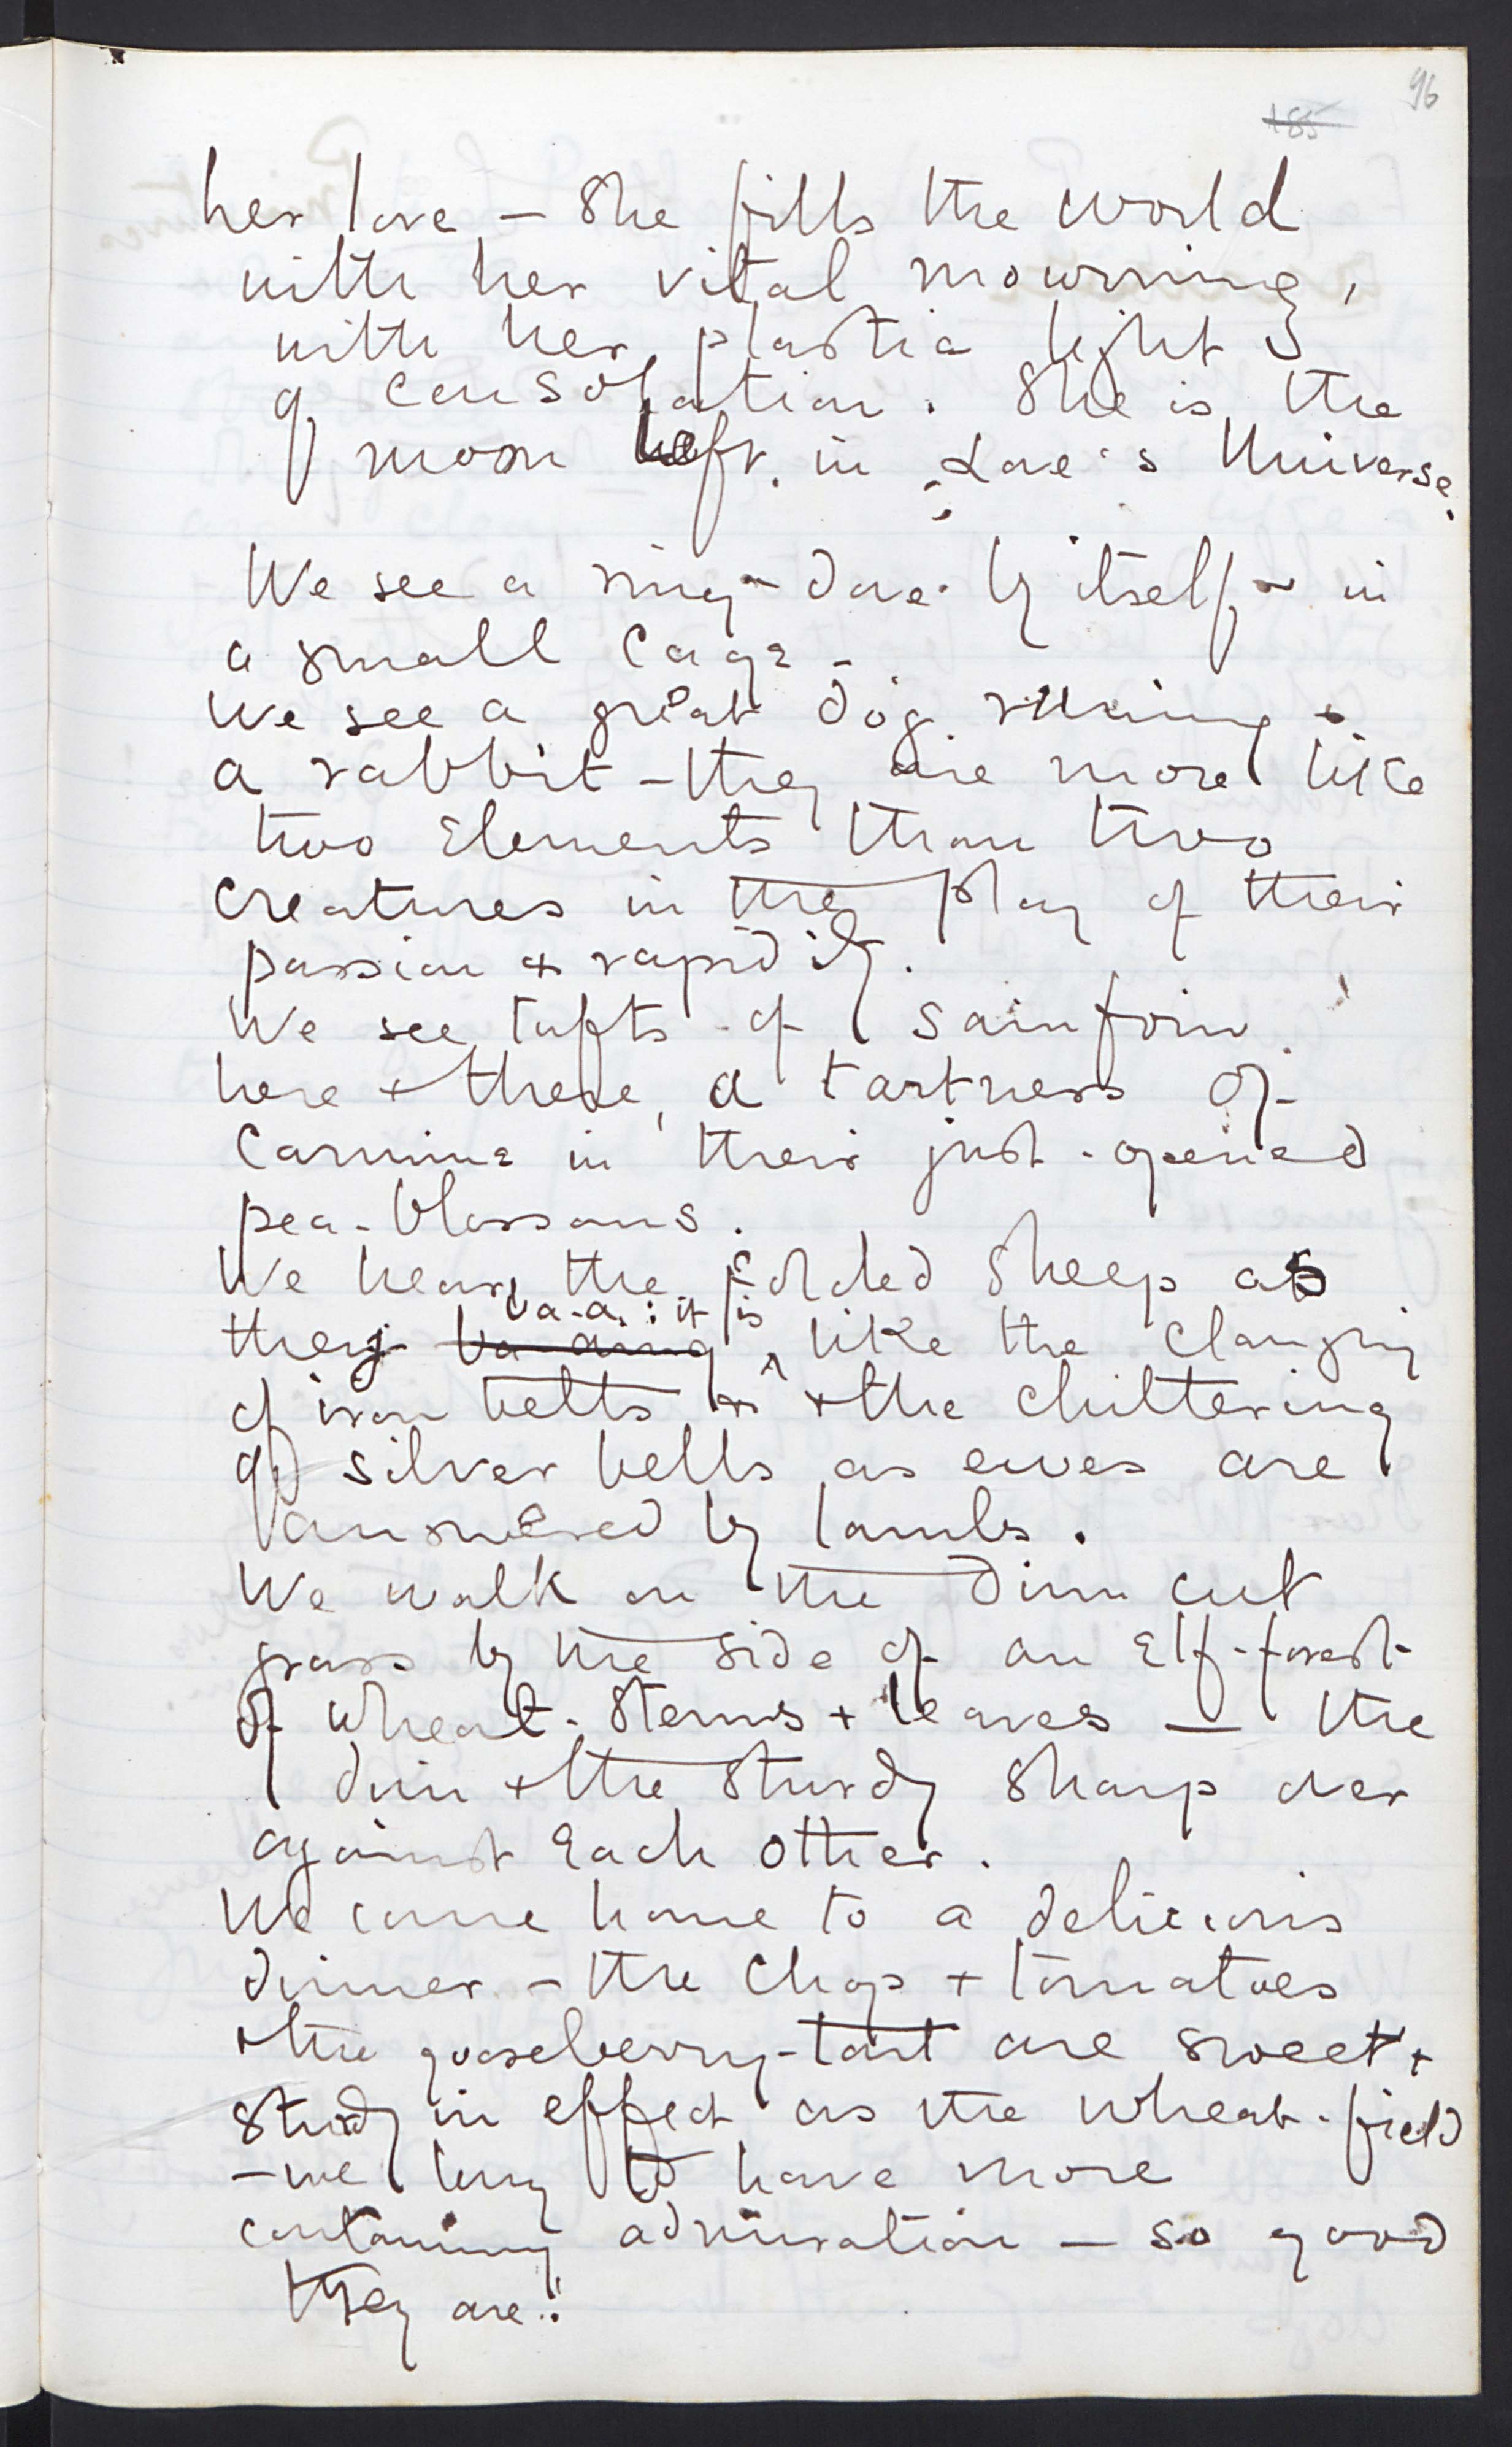 96
185
her love – She fills the world
with her vital mourning,
with her plastic light
of consolation. She is the
moon left in Love's Universe.
We see a ring-dove by itself – in
a small cage –
We see a great dog running +
a rabbit – they are more like
two Elements than two
creatures in the play of their
passion + rapidity.
We see tufts of Sainfoin
here + there, a tartness of
Carmine in their just-opened
pea-blossoms.
We hear the folded Sheep as
ba-a: it is
they ba-aing like the clanging
of iron bells + the chittering
of silver bells as ewes are
answered by lambs.
We walk on the dim cut
grass by the side of an Elf-forest
of Wheat-Stems + leaves — the
dim + the sturdy sharp over
against Each other.
We come home to a delicious
dinner – the Chop + tomatoes
+ the gooseberry-tart are sweet +
sturdy in effect as the wheat-field
– we long to have more
containing admiration – so good
they are!